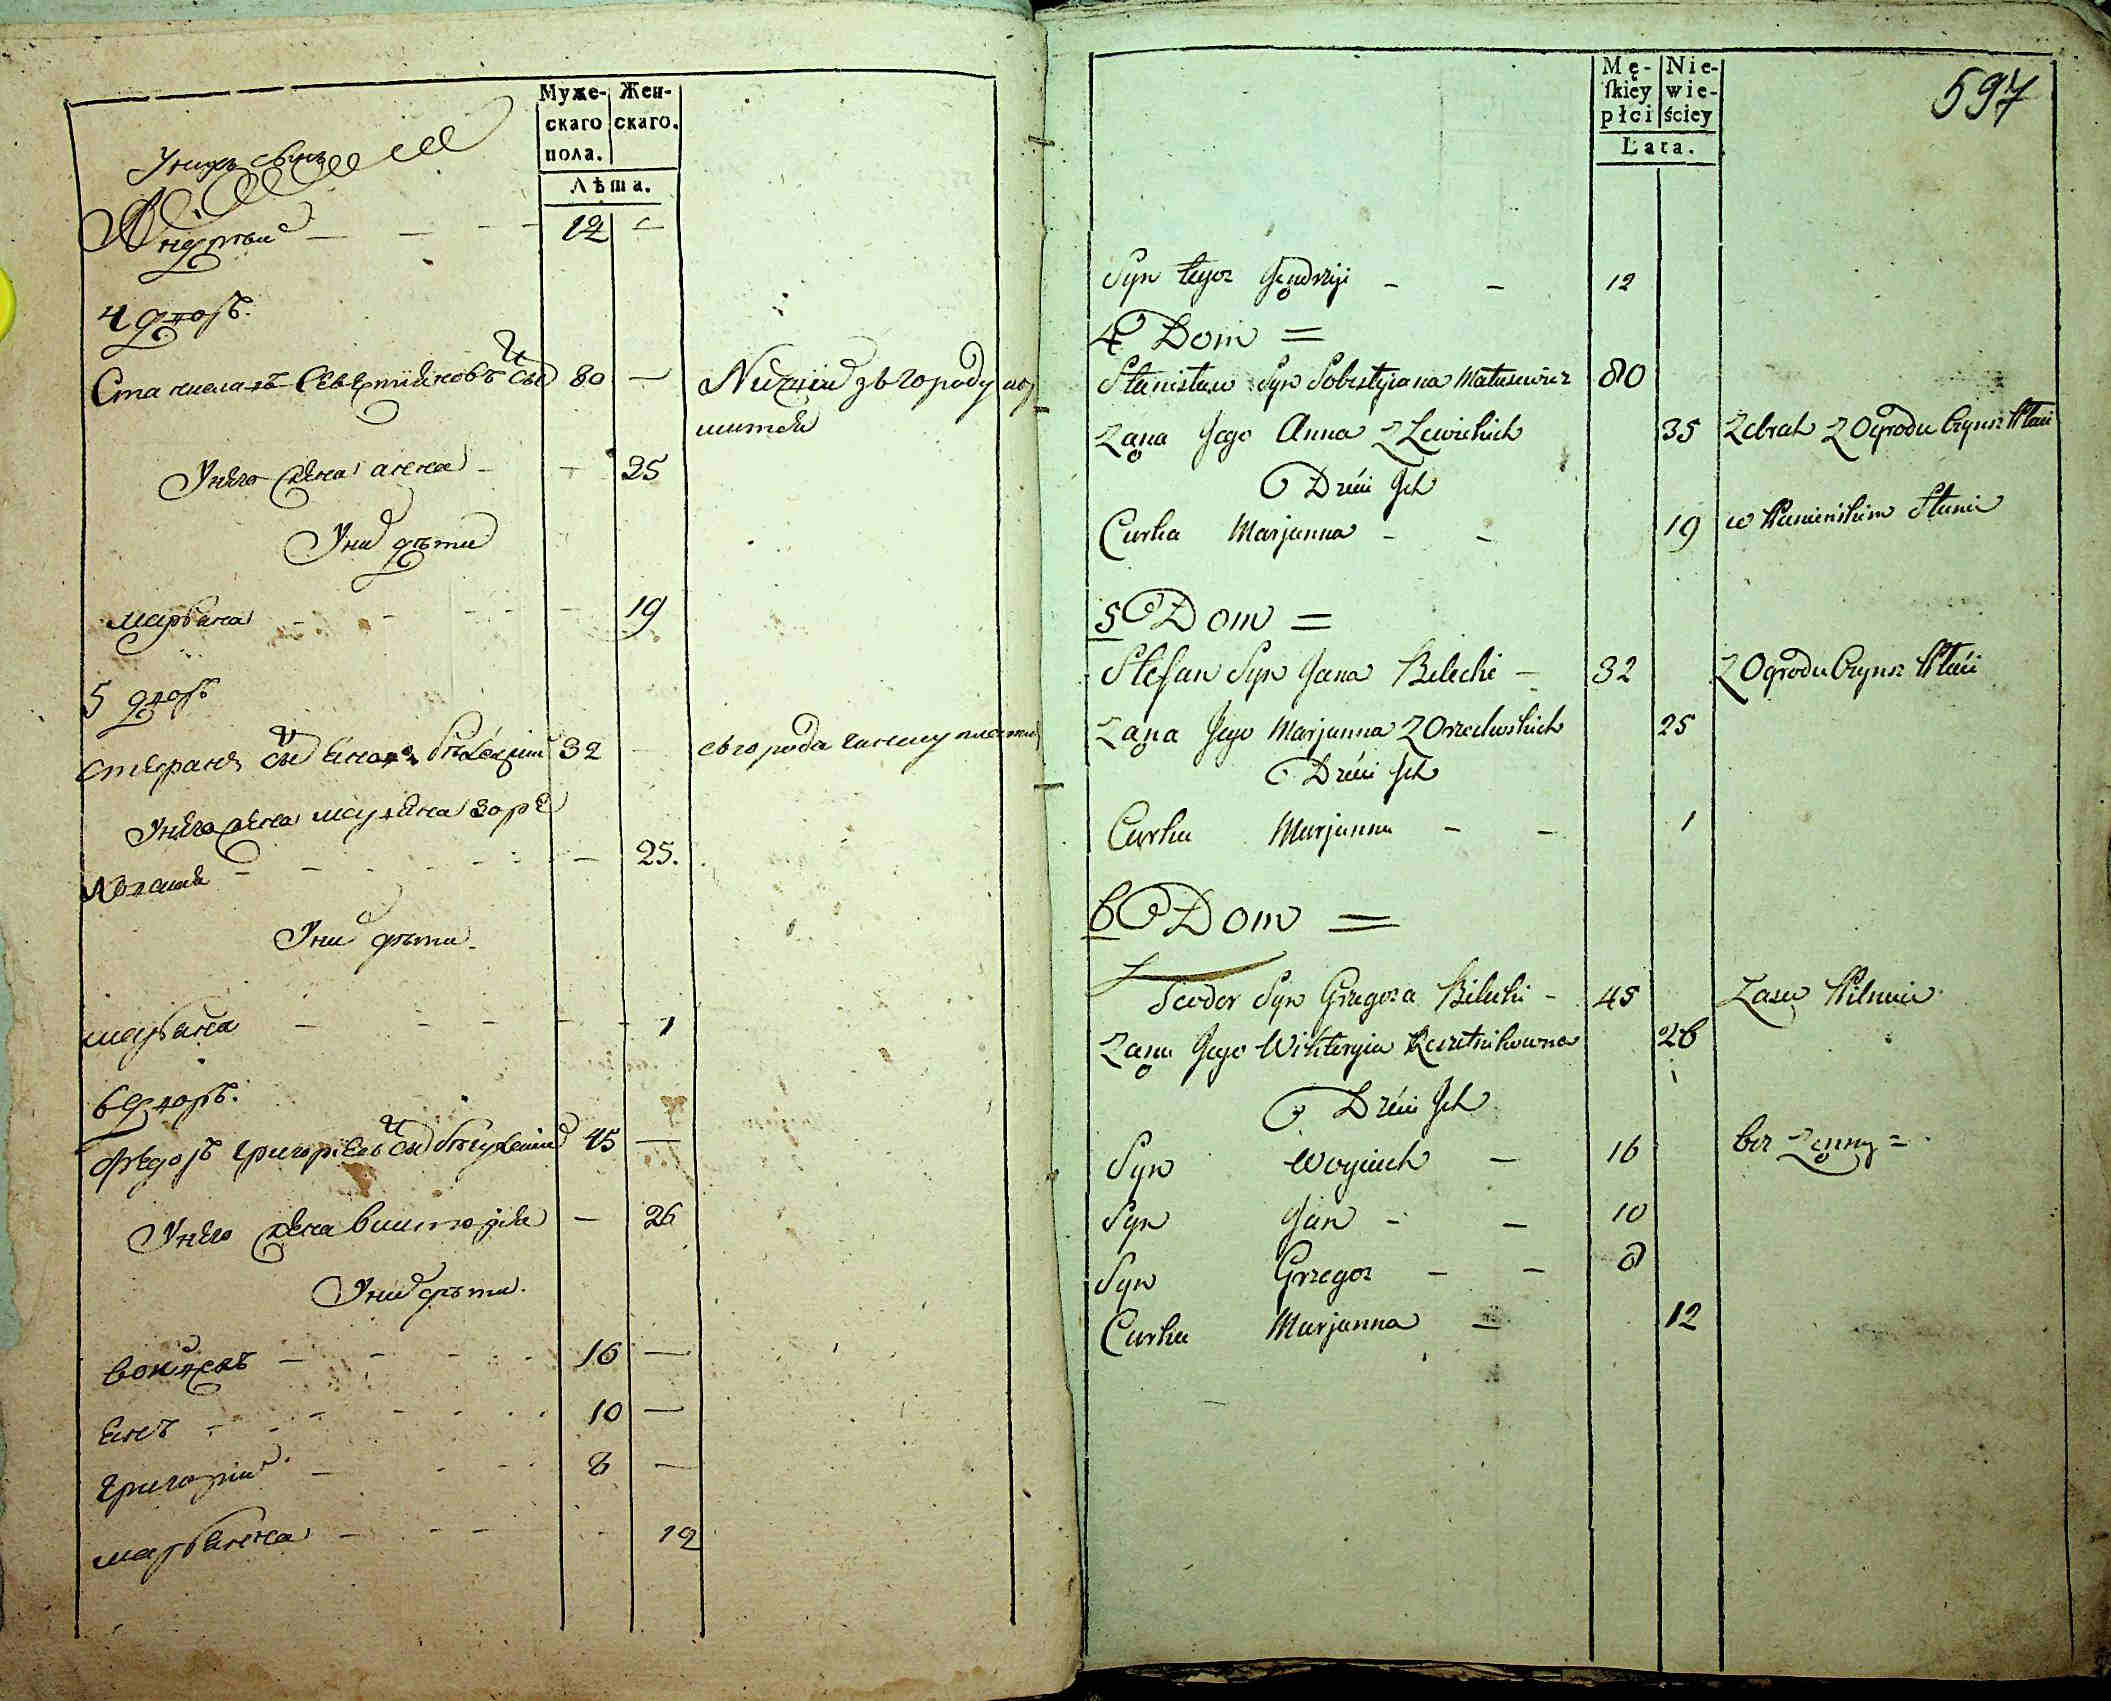 Муже- Жен-
скаго скаго.
пола.
Лѣта.
Унихъ сынъ
Андрѣй — — — 12 —
4 дворъ.
Станиславъ Севѣстияновъ сы̃ 80 — Нищий зъ городу
Унего жена анна — — 35
Уни дѣти
маръяна — — — 19
5 дворъ
стефанъ сы̃ яновъ 32 — съ города чиншу
Унего жена марьяна зоре
ховская — — — 25.
Уни дѣти
марьяна — — — 1
6 дворъ.
Федоръ григориевъ сы̃ 45 —
Унего жена викторія — 26
Уни дѣти.
Войцехъ — — 16 —
янъ — — 10 —
григорій — — 8 —
марьянна — — 12
597
Mę- Nie-
ſkiey wie-
płci ściey
Lata.
Syn Jendrzij — — 12
4 Dom =
Stanisław Syn Sobestyiana Matusewicz 80
Zona Jego Anna Z Lewickich 35 Zebrak Z Ogrodu Czynsz Płaci
Dzieci Jch
Curka Marjanna — — 19 w Kamieńskim Stanie
5 Dom =
Stefan Syn Jana Bilecki — 32 Z Ogrodu Czynsz Płaci
Zona Jego Marjanna Z Orzechowskich 25
Dzieci Jch
Curka Marjanna — — 1
6 Dom =
Teodor Syn Grzegorza Bilecki — 45 Lasu Pilnuie
Zona Jego Wikteryia Reszetnikowna 26
Dzieci Jch
Syn Woyciech — 16 bez Zonny =
Syn Jan — — 10
Syn Grzegorz — — 8
Curka Marjanna — 12